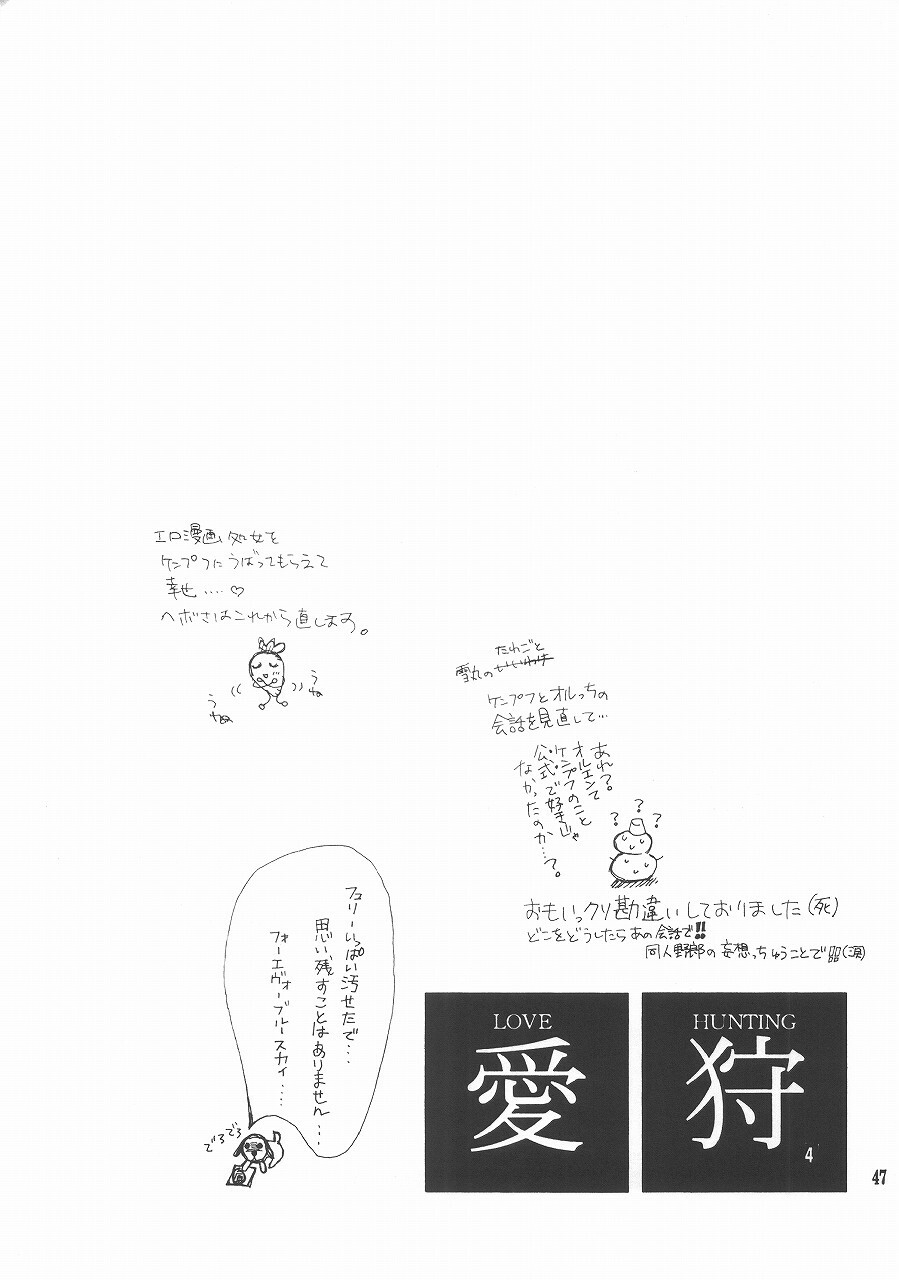 エロ漫画処女を
ケンプフにうばってもらえて
幸せ....♡
ヘボさはこれから直します。
うね
うね
たわごと
雪丸のいいわけ
ケンプフとオルっちの
会話を見直して...
あれ?
オルエンて
ケンプフのこと
公式で好きじゃ
なかったのか...?。
? ? ?
おもいっクソ勘違いしておりました(死)
どこをどうしたらあの会話で!!
同人野郎の妄想っちゅうことで(涙)
フュリーいっぱい汚せたで...
思い残すことはありません...
フォーエヴォーブルースカイ....
でろでろ
LOVE
愛
HUNTING
狩
4
47